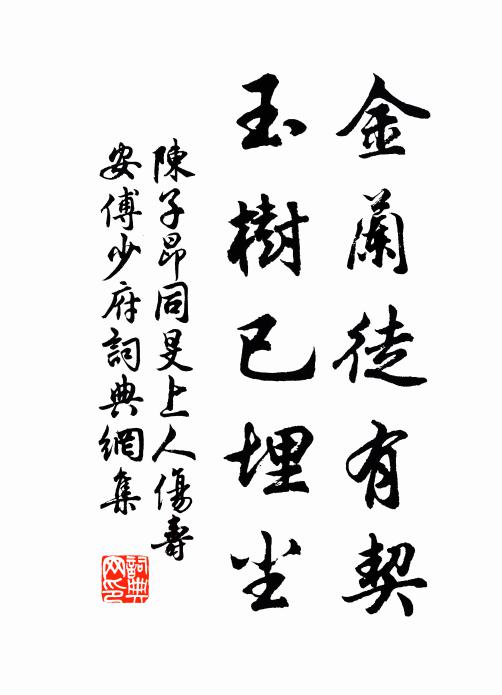 金蘭徒有契
玉樹已埋尘
陳子昂同旻上人傷壽
安傅少府詞典網集
詞典
网印